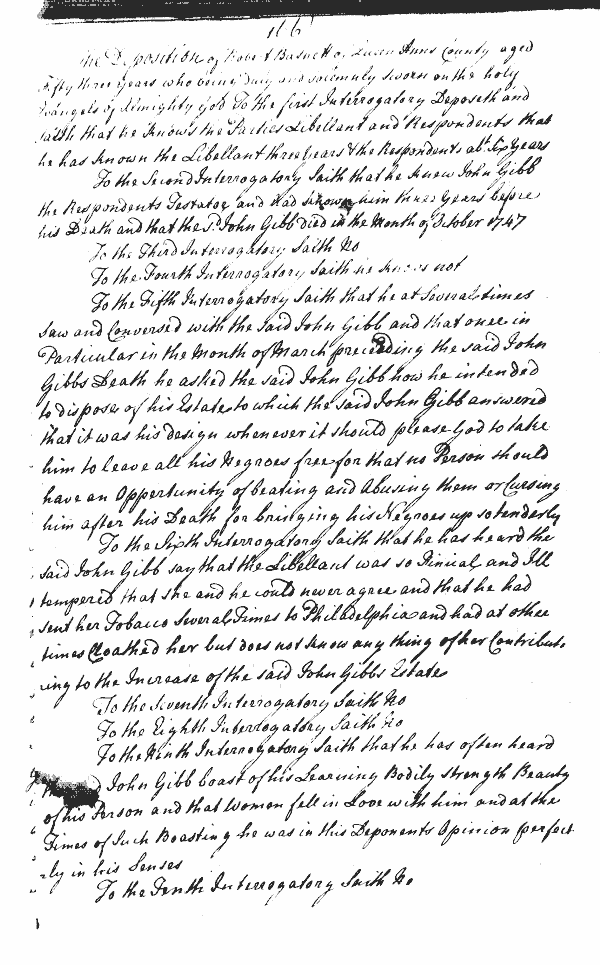 The Deposition of Robert Basnett of Queen Anns County aged
Fifty three years who being Duly and solemnly sworn on the holy
Evangels of Almighty God To the first Interrogatory Deposeth and
saith that he knows the Parties Libellant and Respondents that
he has known the Libellant three Years & the Respondents abt. Six Years
To the Second Interrogatory Saith that he knew John Gibb
the Respondents Testator and had known him three years before
his Death and that the sd. John Gibb died in the month of October 1747
To the Third Interrogatory Saith No
To the Fourth Interrogatory Saith he knows not
To the Fifth Interrogatory Saith that he at Several times
saw and Conversed with the said John Gibb and that once in
Particular in the Month of March preceeding the said John
Gibbs Death he asked the said John Gibb how he intended
to dispose of his Estate to which the said John Gibb answered
that it was his design whenever it should please God to take
him to leave all his Negroes free for that no Person should
have an Opportunity of beating and Abusing them or Cursing
him after his Death for bringing his Negroes up so tenderly
To the Sixth Interrogatory Saith that he has heard the
said John Gibb say that the Libellant was so and Ill
tempered that she and he could never agree and that he had
sent her Tobacco Several Times to Philadelphia and had at other
times Cloathed her but does not know any thing of her Contribut-
-ing to the Increase of the said John Gibbs Estate
To the Seventh Interrogatory Saith No
To the Eighth Interrogatory Saith No
To the Ninth Interrogatory Saith that he has often heard
John Gibb boast of his Learning Bodily strength Beauty
of his Person and that Women fell in Love with him and at the
Times of Such Boasting he was in this Deponents Opinion perfect
-ly in his Senses
To the Tenth Interrogatory Saith No